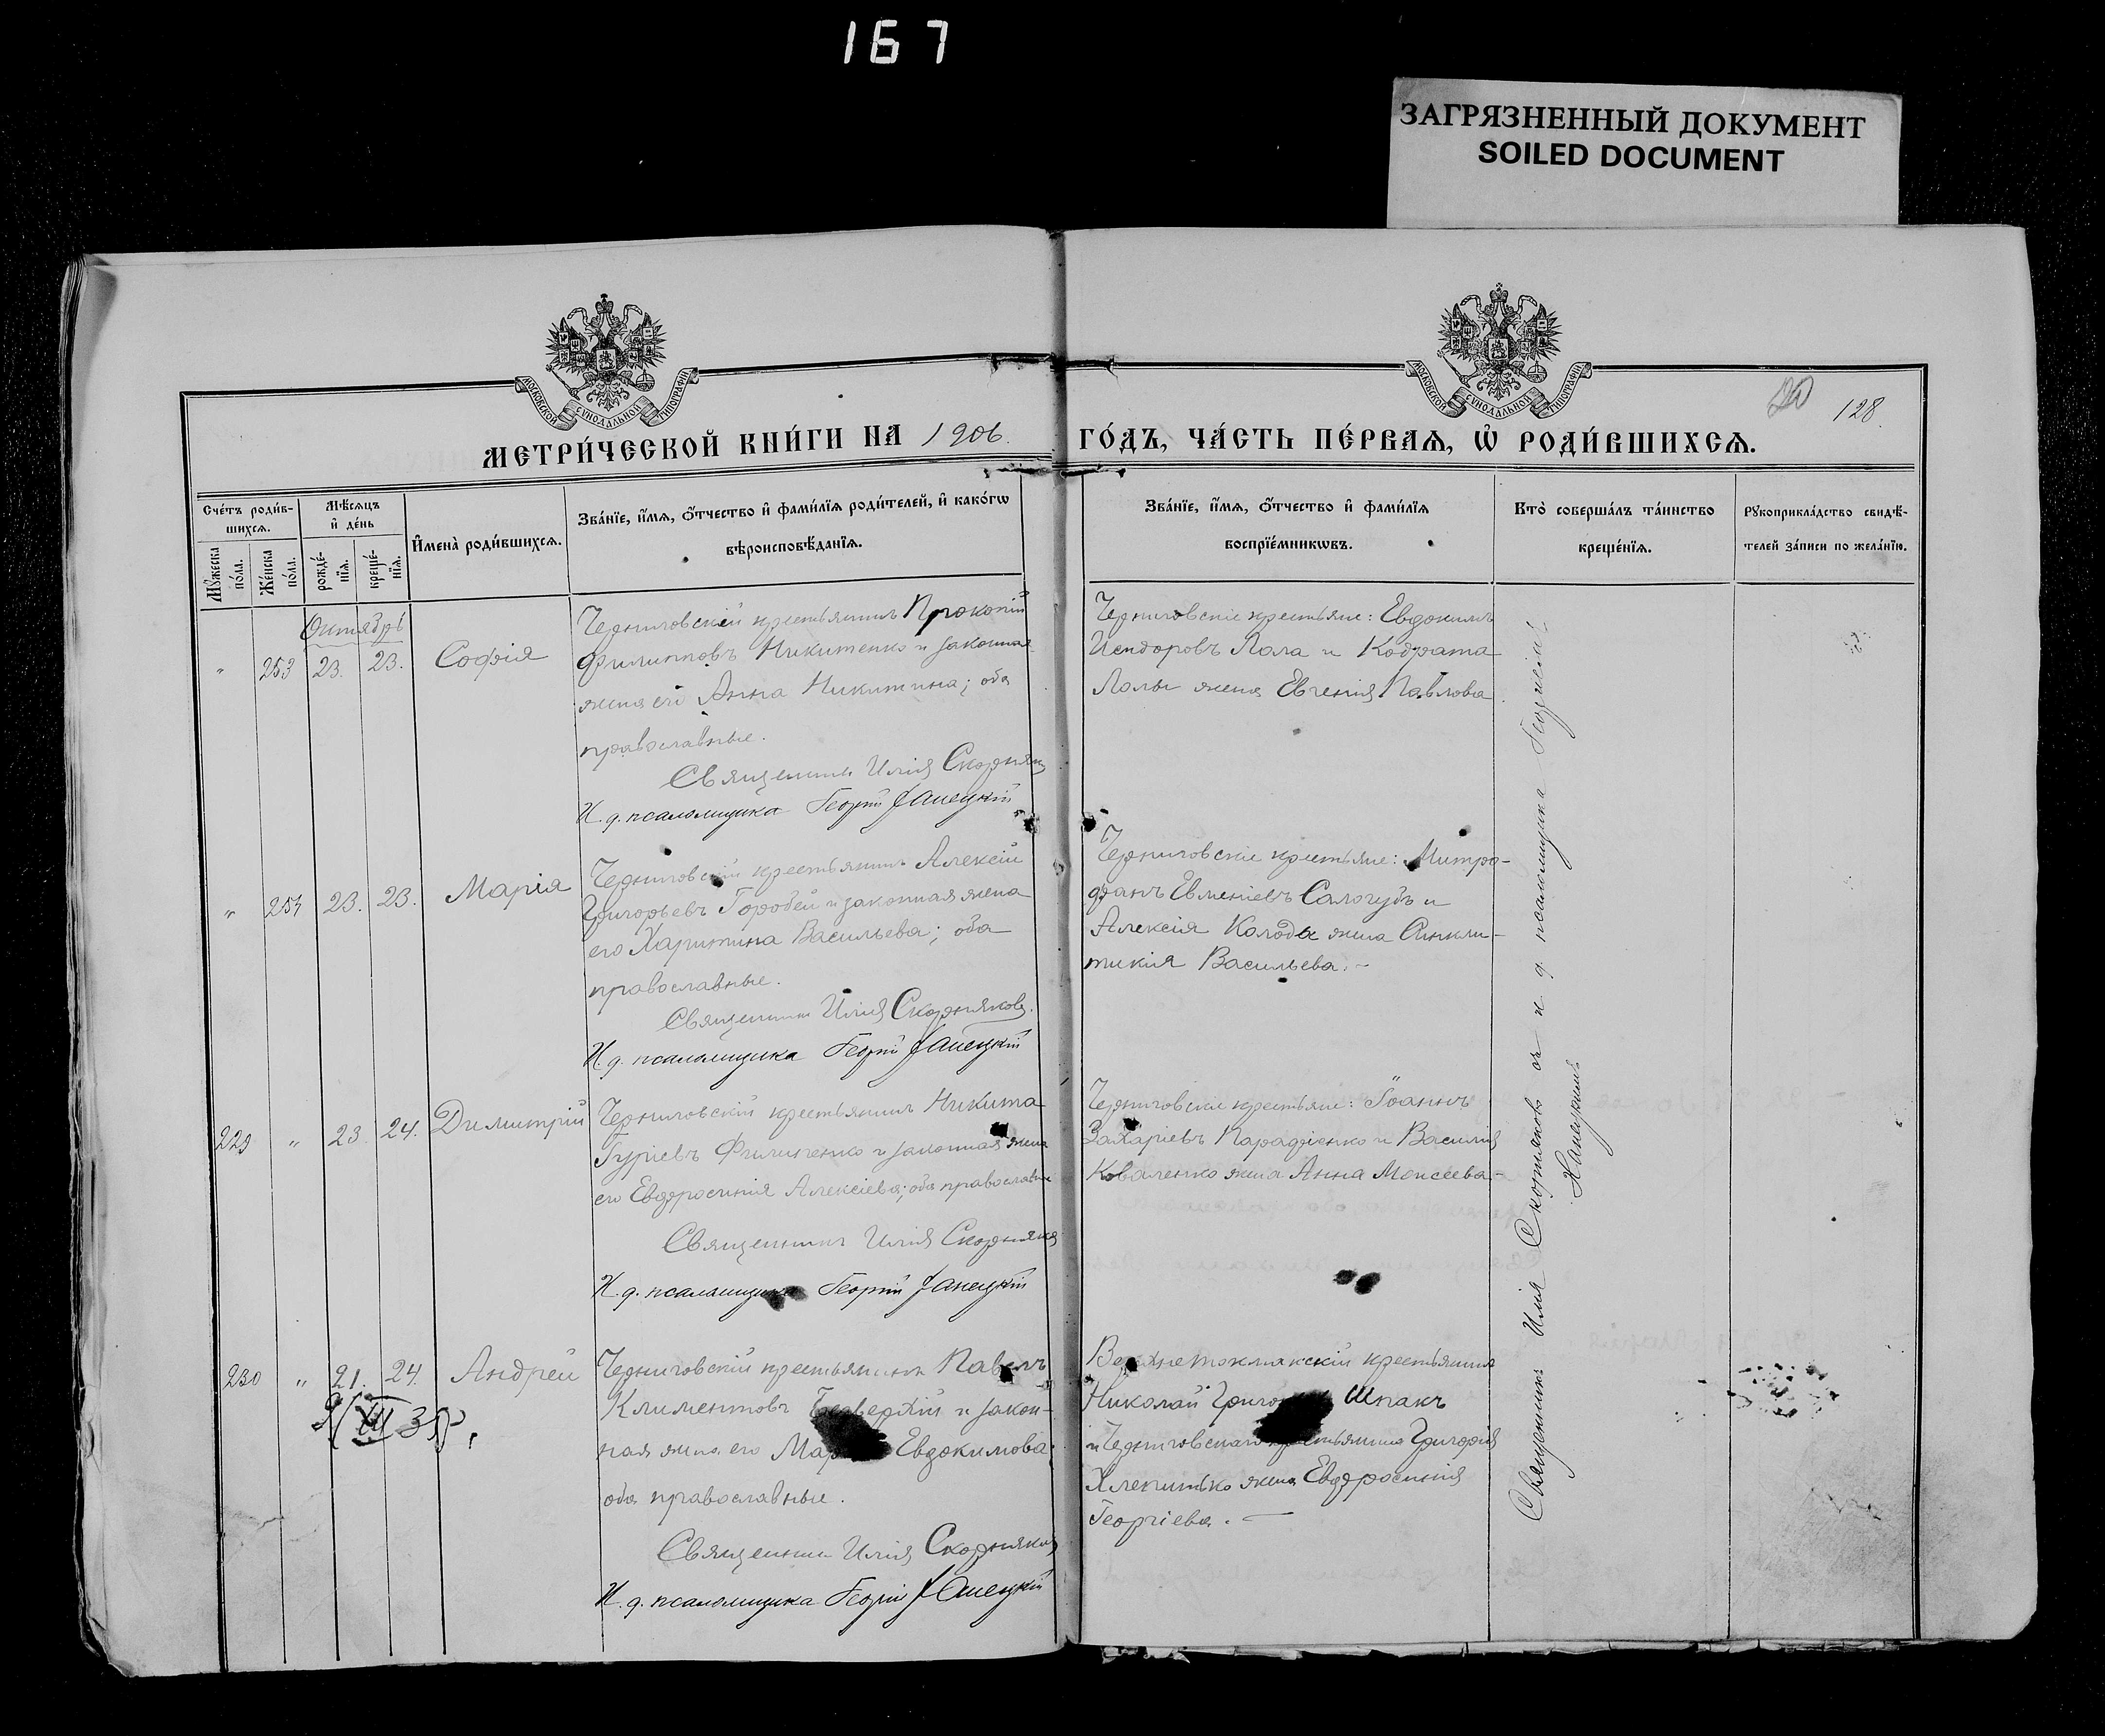 167
ЗАГРЯЗНЕННЫЙ ДОКУМЕНТ
SOILED DOCUMENT
МОСКОВСКОЙ СѴНОДАЛЬНОЙ ТИПОГРАФІИ
МОСКОВСКОЙ СѴНОДАЛЬНОЙ ТИПОГРАФІИ
128.
МЕТРИ́ЧЕСКОЙ КНИ́ГИ НА 1906. ГО́ДЪ, ЧА́СТЬ ПЕ́РВАѦ, Ѡ҆ РОДИ́ВШИХСѦ.
Сче́тъ роди́в-
шихсѧ.
Мꙋ́жеска по́ла.
Же́нска по́ла.
Мѣ́сѧцъ и҆ де́нь
рожде́-нїѧ.
креще́-нїѧ.
И҆мена̀ роди́вшихсѧ.
Зва́нїе, и҆́мѧ, ѻ҆́тчество и҆ фами́лїѧ роди́телей, и҆ како́гѡ
вѣроисповѣ́данїѧ.
Зва́нїе, и҆́мѧ, ѻ҆́тчество и҆ фами́лїѧ
воспрїе́мникѡвъ.
Кто̀ соверша́лъ та́инство
креще́нїѧ.
Рꙋкоприкла́дство свидѣ́-
телей за́писи по жела́нїю.
Октябрь
" 253 23. 23. Софія
Черниговскій крестьянинъ Прокопій
Филипповъ Никитенко и законная
жена его Анна Никитина; оба
православные.
Священникъ Илія Скорняк
И. д. псаломщика Георгій
Черниговскіе крестьяне: Евдокимъ
Исидоровъ Лола и Кодрата
Лолы жена Евгенія Павлова
" 254 23. 23. Марія
Черниговскій крестьянинъ Алексій
Григорьевъ Горобей и законная жена
его Харитина Васильева; оба
православные.
Священникъ Илія Скорняковъ.
И. д. псаломщика Георгій
Черниговскіе крестьяне: Митро-
фанъ Евменіевъ Салогубъ и
Алексія Колоды жена Синкли-
тикія Васильева.-
229 " 23 24. Димитрій
Черниговскій крестьянинъ Никита
Гуріевъ Филипенко и законная жена
его Евфросинія Алексіева; оба православные
Священникъ Илія Скорняков
И. д. псаломщика Георгій
Черниговскіе крестьяне: Іоаннъ
Захаріевъ и Василія
Коваленко жена Анна Моисеева.-
230 " 21. 24. Андрей
Черниговскій крестьянинъ Павелъ
Климентовъ и закон-
ная жена его Евдокимова
оба православные.
Священникъ Илія Скорняков
И. д. псаломщика Георгій
Верхнетокмакскій крестьянинъ
Николай Шпакъ
и Черниговскаго крестьянина Григорія
жена Евфросинія
Георгіева. -
Священникъ Илія Скорняковъ съ и. д. псаломщика Георгіемъ